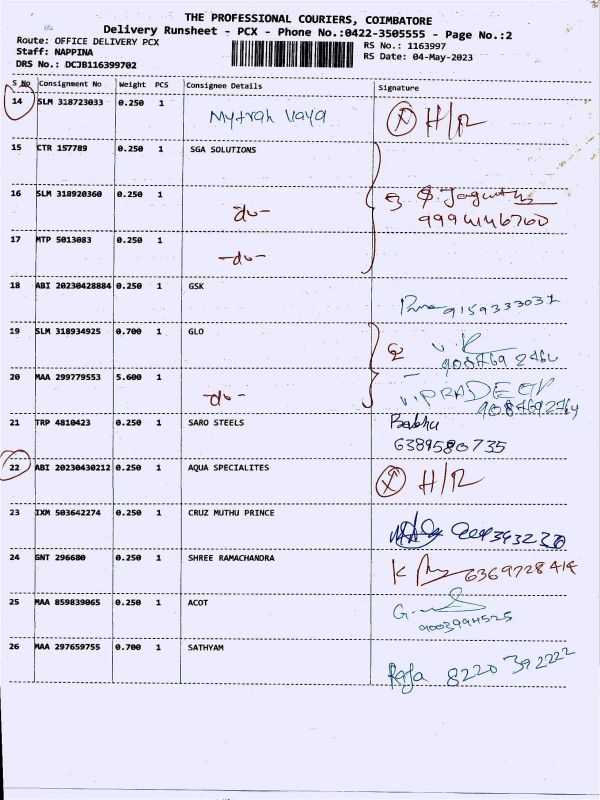 THE PROFESSIONAL COURIERS, COIMBATORE
Delivery Runsheet - PCX - Phone No.:0422-3505555 - Page No.:2
Route: OFFICE DELIVERY PCX
RS No.: 1163997
Staff: NAPPINA
RS Date: 04-May-2023
DRS No.: DCJB116399702
S No Consignment No Weight PCS Consignee Details Signature
14 SLM 318723033 0.250 1 H/R
15 CTR 157789 0.250 1 SGA SOLUTIONS
16 SLM 318920360 0.250 1 -do-
9994146760
17 MTP 5013083 0.250 1 -do-
18 ABI 20230428884 0.250 1 GSK 9159333031
19 SLM 318934925 0.700 1 GLO
20 MAA 299779553 5.600 1 -do- V. PRADEEP
9087692464
21 TRP 4810423 0.250 1 SARO STEELS Babhu
6389580735
22 ABI 20230430212 0.250 1 AQUA SPECIALITES H/R
23 IXM 503642274 0.250 1 CRUZ MUTHU PRINCE
24 GNT 296680 0.250 1 SHREE RAMACHANDRA
25 MAA 859839065 0.250 1 ACOT
26 MAA 297659755 0.700 1 SATHYAM Raja 8220392222